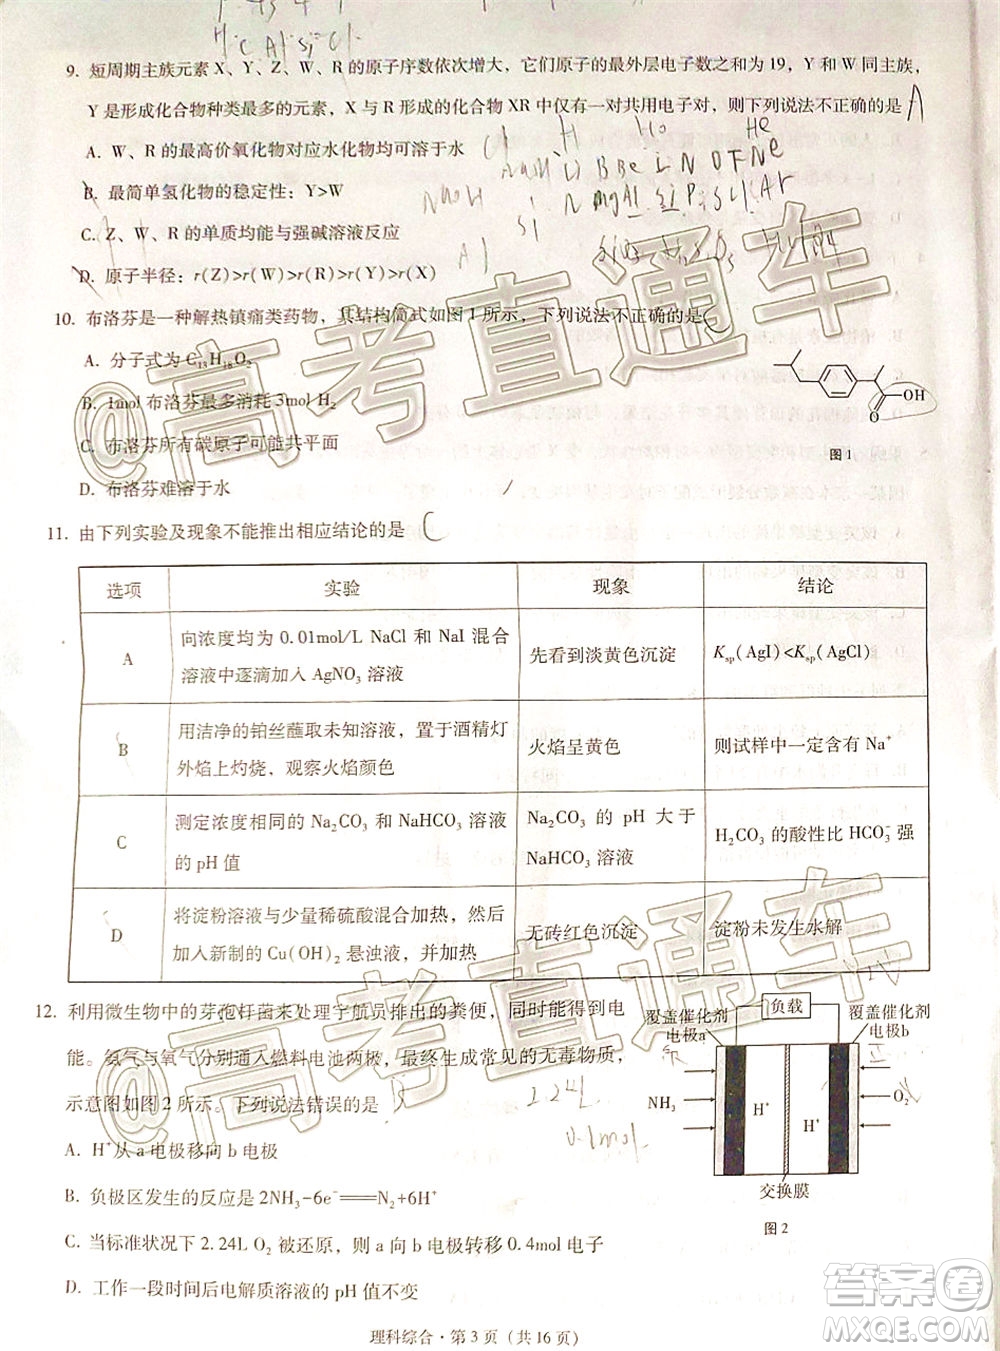 H C Al Si Cl
9. 短周期主族元素 X、Y、Z、W、R 的原子序数依次增大，它们原子的最外层电子数之和为 19，Y 和 W 同主族，
Y 是形成化合物种类最多的元素，X 与 R 形成的化合物 XR 中仅有一对共用电子对，则下列说法不正确的是 A
A. W、R 的最高价氧化物对应水化物均可溶于水
B. 最简单氢化物的稳定性：Y>W
C. Z、W、R 的单质均能与强碱溶液反应
D. 原子半径：r(Z)>r(W)>r(R)>r(Y)>r(X)
10. 布洛芬是一种解热镇痛类药物，其结构简式如图 1 所示，下列说法不正确的是 C
A. 分子式为 C₁₃H₁₈O₂
B. 1mol 布洛芬最多消耗 3mol H₂
C. 布洛芬所有碳原子可能共平面
D. 布洛芬难溶于水
OH
O
图 1
11. 由下列实验及现象不能推出相应结论的是 C
选项 实验 现象 结论
A 向浓度均为 0.01mol/L NaCl 和 NaI 混合溶液中逐滴加入 AgNO₃ 溶液 先看到淡黄色沉淀 Ksp(AgI)<Ksp(AgCl)
B 用洁净的铂丝蘸取未知溶液，置于酒精灯外焰上灼烧，观察火焰颜色 火焰呈黄色 则试样中一定含有 Na⁺
C 测定浓度相同的 Na₂CO₃ 和 NaHCO₃ 溶液的 pH 值 Na₂CO₃ 的 pH 大于 NaHCO₃ 溶液 H₂CO₃ 的酸性比 HCO₃⁻ 强
D 将淀粉溶液与少量稀硫酸混合加热，然后加入新制的 Cu(OH)₂ 悬浊液，并加热 无砖红色沉淀 淀粉未发生水解
12. 利用微生物中的芽孢杆菌来处理宇航员排出的粪便，同时能得到电
能。氨气与氧气分别通入燃料电池两极，最终生成常见的无毒物质，
示意图如图 2 所示。下列说法错误的是 B
2.24L
0.1mol
A. H⁺从 a 电极移向 b 电极
B. 负极区发生的反应是 2NH₃-6e⁻═N₂+6H⁺
C. 当标准状况下 2.24L O₂ 被还原，则 a 向 b 电极转移 0.4mol 电子
D. 工作一段时间后电解质溶液的 pH 值不变
负载
覆盖催化剂电极a
覆盖催化剂电极b
NH₃
H⁺
H⁺
O₂
交换膜
图 2
理科综合·第 3 页（共 16 页）
@高考直通车
@高考直通车
答案卷
MXQE.COM